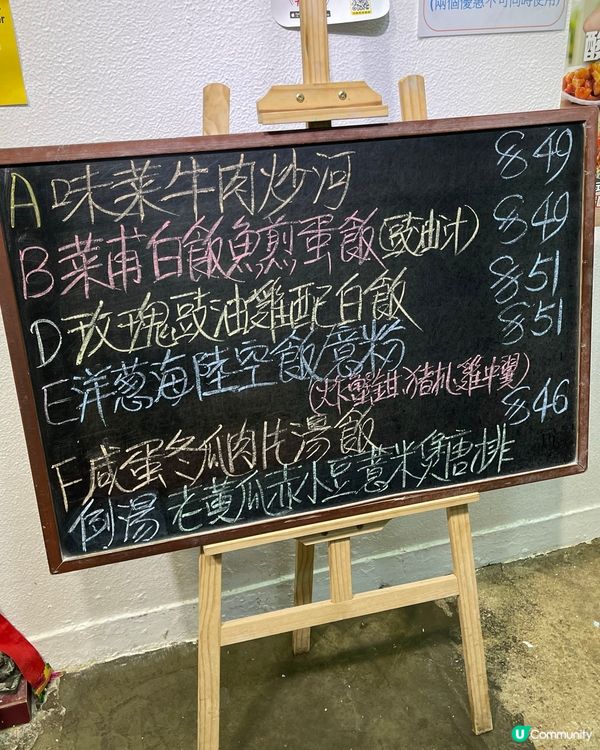 (兩個優惠不可同時使用)
A 味菜牛肉炒河 $49
B 菜甫白飯魚煎蛋飯(豉油汁) $49
D 玫瑰豉油雞配白飯 $51
E 洋葱海陸空飯意粉 $51
(炸蟹鉗.猪扒.雞中翼)
F 咸蛋冬瓜肉片湯飯 $46
例湯 老黄瓜赤小豆薏米煲唐排
U Community